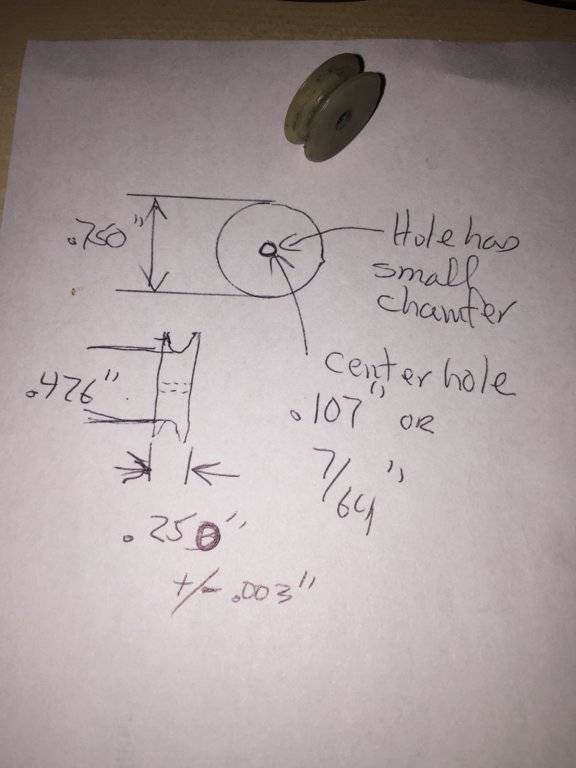 .750"
Hole has
small
chamfer
.476"
center hole
.107" OR
7/64"
.250"
+/- .003"